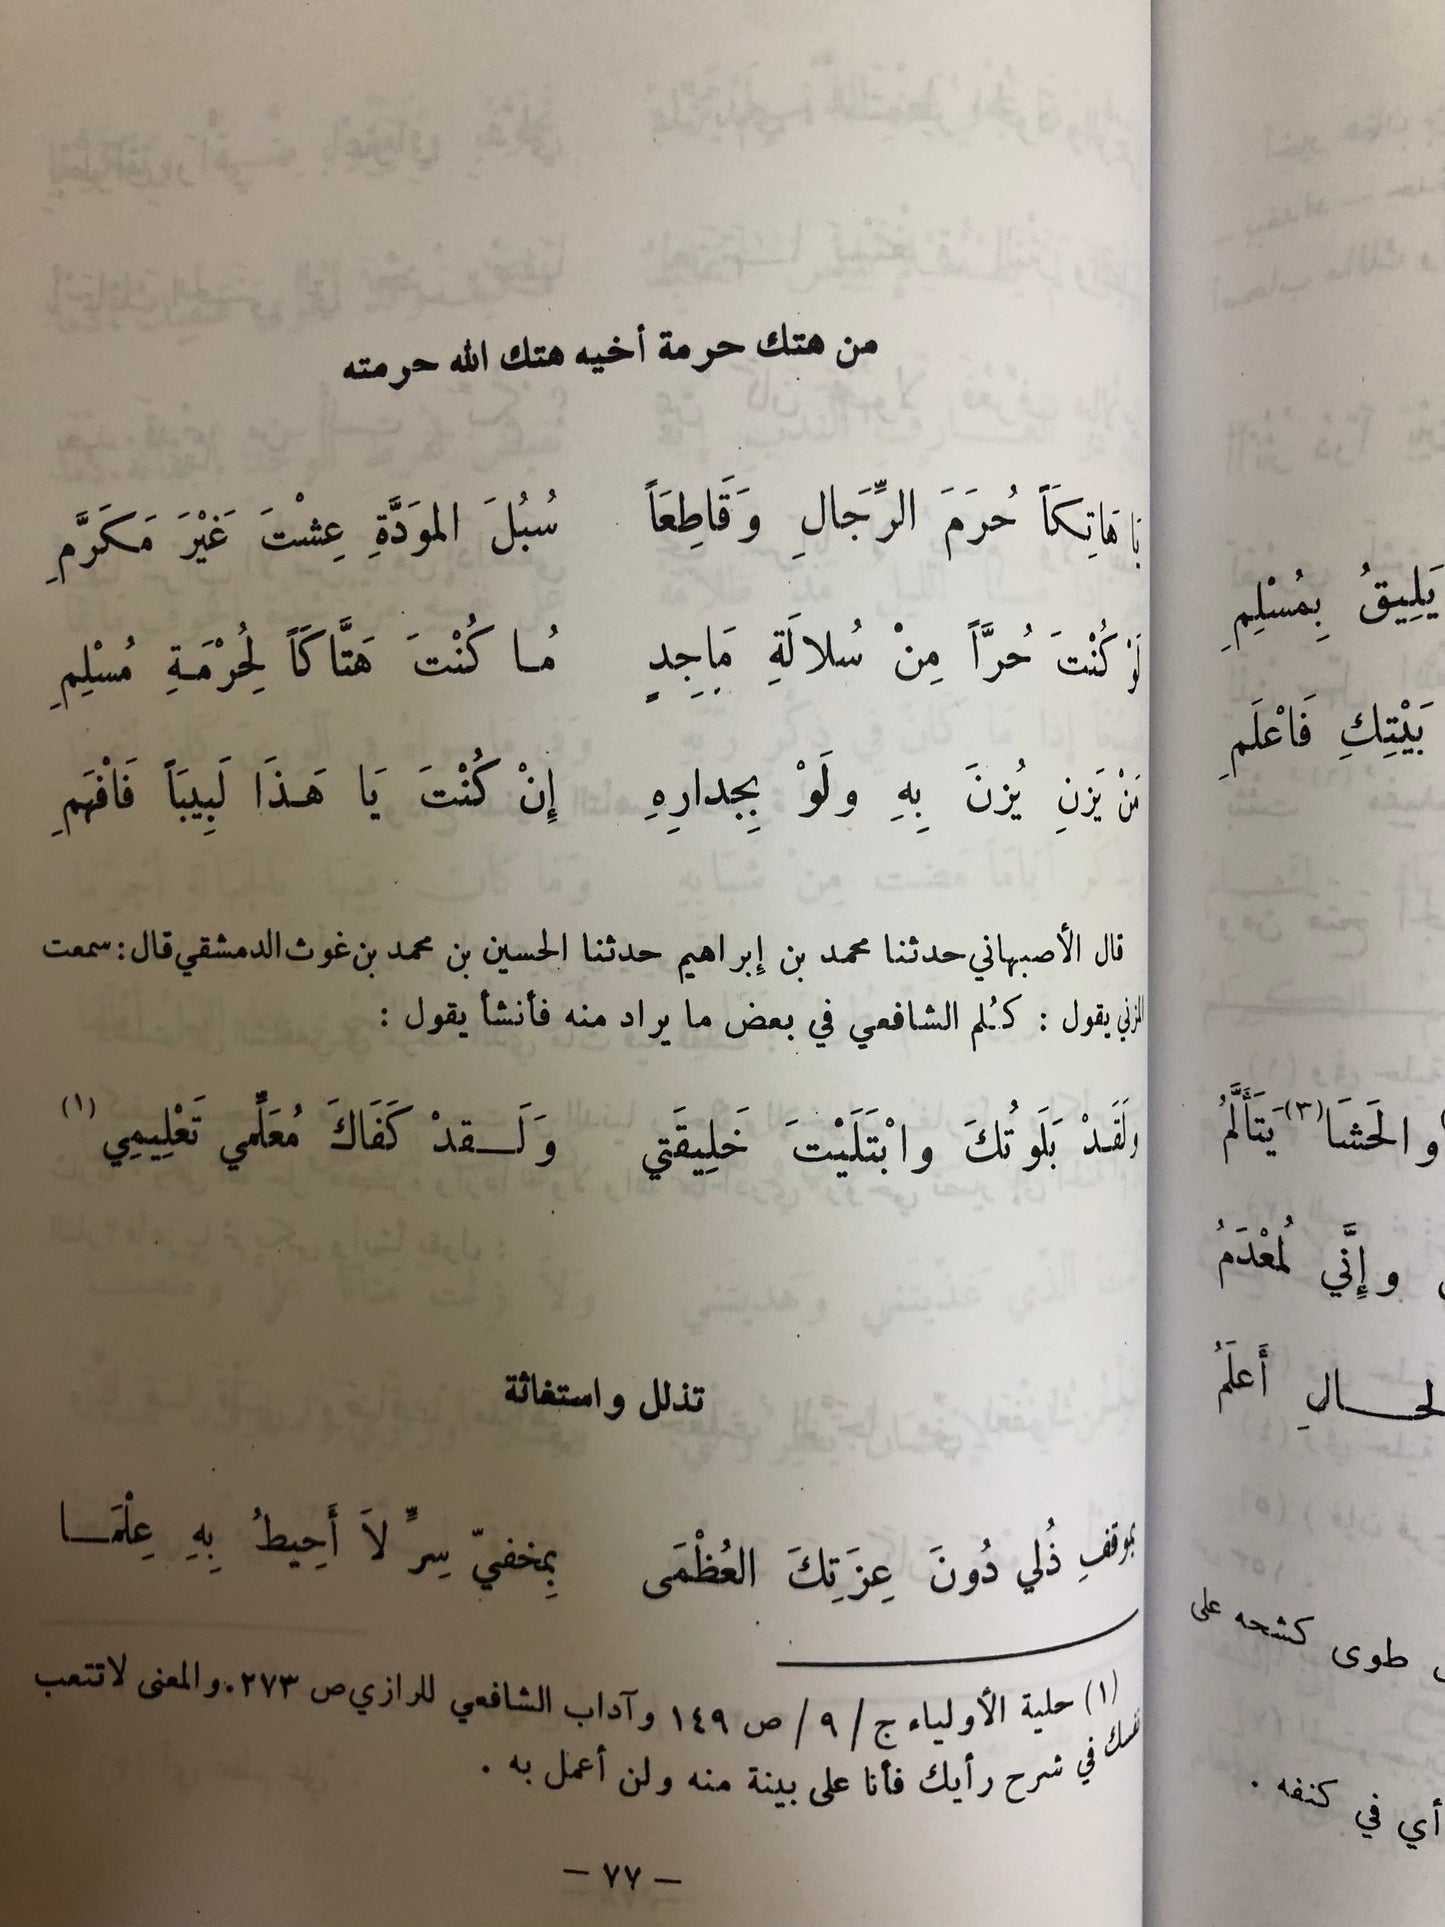 من هتك حرمة أخيه هتك الله حرمته
يَا هَاتِكَاً حُرَمَ الرِّجَالِ وَقَاطِعَاً سُبُلَ المَوَدَّةِ عِشْتَ غَيْرَ مَكَرَّمِ
لَوْ كُنْتَ حُرَّاً مِنْ سُلالَةِ مَاجِدٍ مُـا كُنْتَ هَتَّاكَاً لِحُرْمَةِ مُسْلِمِ
مَنْ يَزنِ يُزنَ بِهِ ولَوْ بِجدارِهِ إِنْ كُنْتَ يَا هَـذَا لَبِيبَاً فَافْهَمِ
قال الأصبهاني حدثنا محمد بن إبراهيم حدثنا الحسين بن محمد بن غوث الدمشقي قال : سمعت
المزني يقول : كُلم الشافعي في بعض ما يراد منه فأنشأ يقول :
ولَقَدْ بَلَوتُكَ وابْتَلَيْتَ خَلِيقَتي وَلَـــقدْ كَفَاكَ مُعَلِّمي تَعْلِيمِي (١)
تذلل واستغاثة
بموقفِ ذُلي دُونَ عِزَتِكَ العُظْمَى بِمخفيّ سِرٍّ لاَ أَحِيطُ بِهِ عِلْمَـــا
(١) حلية الأولياء ج / ٩ / ص ١٤٩ وآداب الشافعي للرازي ص ٢٧٣ . والمعنى لا تتعب
نفسك في شرح رأيك فأنا على بينة منه ولن أعمل به .
— ٧٧ —
يَلِيقُ بِمُسْلِمِ
بَيْتِكِ فَاعْلَمِ
والحَشَا (٣) يَتَأَلَّمُ
وإِنَّي لمُعْدَمُ
أَعلَمُ
طوى كشحه على
أي في كنفه .